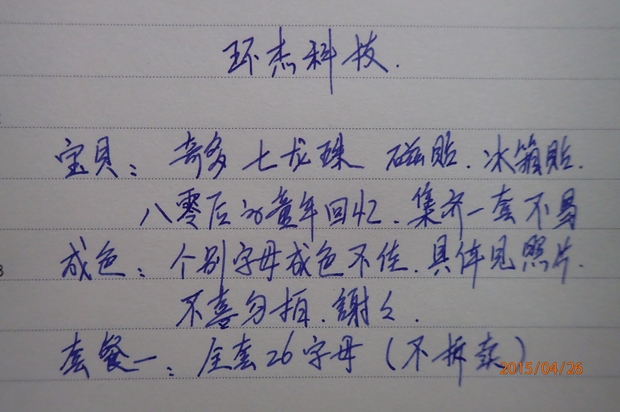 环杰科技.
宝贝: 奇多 七龙珠 磁貼. 冰箱貼.
八零后的童年回忆. 集齐一套不易
成色: 个别字母成色不佳. 具体见照片.
不喜勿拍. 謝々.
套餐一: 全套26字母 (不拆卖)
2015/04/26